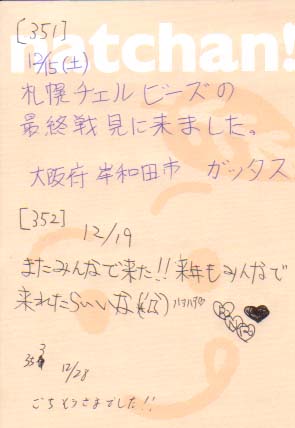 natchan!
[351]
12/15(土)
札幌チェルビーズの
最終戦見に来ました。
大阪府 岸和田市 ガッタス
[352]
12/19
またみんなで来た!!来年もみんなで
来れたらいいな
353
12/28
ごちそうさまでした!!